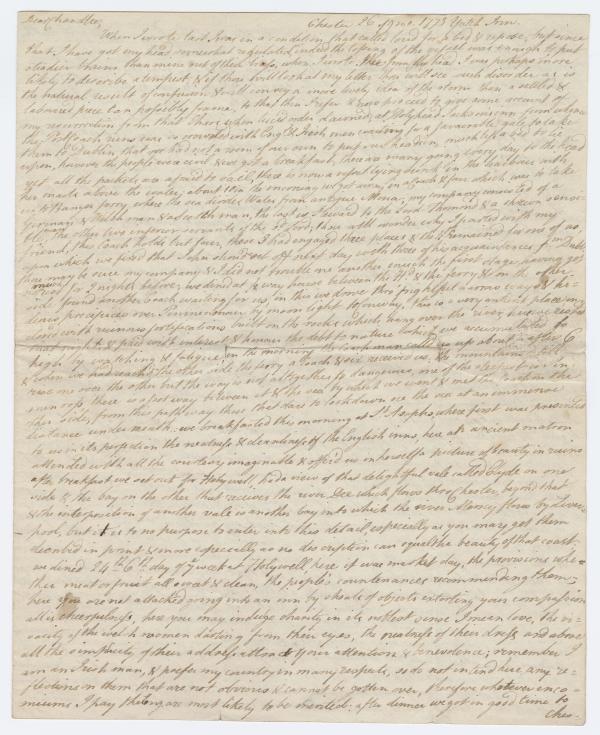 Dear Chandlee, Chester 26 of 9 mo. 1773
When I wrote last I was in a condition that called loud for a bed & repose, but since
that I have got my head somewhat regulated, indeed the tossing of the vessel was enough to put
steadier brains than mine out of their bias, when I wrote free from the sea I was perhaps more
likely to describe a tempest, & if thou wilt look at my letter thou will see such disorder as is
the natural result of confusion & will convey a more lively idea of the storm than a settled &
laboured piece can possibly frame, to that then I refer & now proceed to give some account of
my resurrection from that. There when we landed, at Holyhead
the inns was so crowded with Eng. & Irish men waiting for a favourable gale to take
them to Dublin, that we had not a room of our own to put our heads in, much less a bed to lie
upon, however the people were civil & we got a breakfast, there are many going every day to the head
yet all the packets are afraid to sail, there is now a vessel lying in the with
her masts above the water; about 10 in the morning we got away in a coach & four which was to take
us to Bangor ferry, where the sea divides Wales from antique Mona; my company consisted of a
German, & Welsh man & a Scotch man, the last is Steward to the Lord & a
the other two inferior servants of the Lord; thou wilt wonder why I parted with my
friend; this Coach holds but four, those I had engaged three places & there remained for one of us,
upon which we fixed that John should set off next day, with three of his acquaintances from Dublin
thou may be sure my company & I did not trouble one another much the first stage, having got
for 2 nights before; we dined at half way house between the Hd. & the ferry & on the other
side found another Coach waiting for us, in this we drove thro' frightful narrow ways &
prospects over by moon light to Conway, this is a very antient place
with ruinous fortifications built on the rocks which hang over the river, here we rested
that night & paid with interest & honour the debt to nature which we accumulated to
high by watching & fatigue, in the morning the Coachman called us up about 1/2 after 6
& when we had reach'd the other side the ferry a Coach & six received us, the mountains still
rise one over the other but the way is not altogether so dangerous, one of the steepest is in
there is a foot way between it & the sea by which we went & met the Coach on the
other side, from this pathway those that dare to look down see the sea at an immense
distance underneath: we breakfasted this morning at St. Asaphs, where first was presented
to us in its perfection the neatness & cleanliness of the English inns, here an ancient matron
attended with all the courtesy imaginable & offer'd us in herself a picture of beauty in ruins
after breakfast we set out for Holywell, had a view of that delightful vale called Clwyde on one
side & the bay on the other that receives the river Dee which flows thro' Chester, beyond that
& the interposition of another vale is another bay into which the river Mersey flows by Liver-
pool, but it is to no purpose to enter into this detail, especially as you may get them
described in print & more especially as no description can equal the beauty of that coast
we dined 24th 6th day of ye week at Holywell, here it was market day, the provisions whe-
ther meat or fruit all neat & clean, the people's countenances recommending them;
here you are not attacked going into an inn by shoals of objects extorting your compassion
all is cheerfulness, here you may indulge charity in its noblest sense I mean love, the vi-
vacity of the welch women darting from their eyes, the neatness of their dress and above
all the simplicity of their address attract your attention & benevolence; remember I
am an Irish man, & prefer my country in many respects, so do not intend here, any re-
flections on them that are not obvious & cannot be gotten over, therefore whatever enco-
miums I pay the are most likely to be merited: after dinner we got in good time to
Ches-